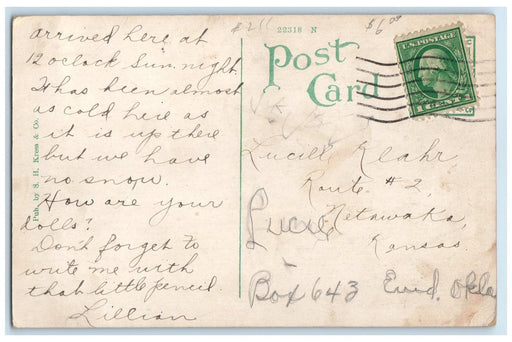 22318-N
$6.00
Post
Card
U.S. POSTAGE
1 CENTS
Pub. by S. H. Kress & Co.
arrived here at
12 oclock Sun. night.
It has been almost
as cold here as
it is up there
but we have
no snow.
How are your
dolls?
Don't forget to
write me with
that little pencil.
Lillian
Lucille Klahr,
Route #2,
Netawaka,
Kansas.
Box 643 Enid. Okla